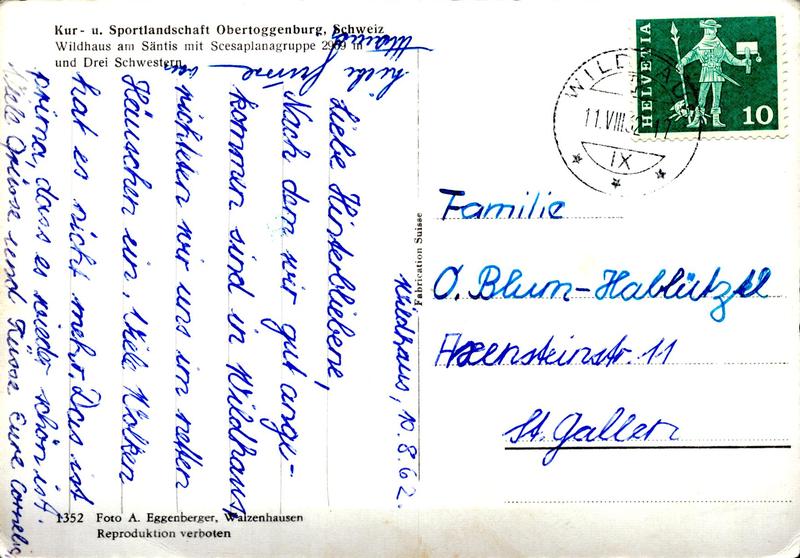 Kur- u. Sportlandschaft Obertoggenburg, Schweiz
Wildhaus am Säntis mit Scesaplanagruppe 2969 m
und Drei Schwestern
HELVETIA
10
WILDHAUS
11.VIII.62-17
IX
Wildhaus, 10.8.62.
Liebe Hinterbliebene,
Nach dem wir gut ange-
kommen sind in Wildhaus,
richteten wir uns im netten
Häuschen ein. Viele Wolken
hat es nicht mehr. Das ist
prima, dass es wieder schön ist.
Viele Grüsse und Küsse Eure Cornelia
Liebe Grüsse
Fabrication Suisse
Familie
O. Blum-Hablützel
Axensteinstr. 11
St. Gallen
1352 Foto A. Eggenberger, Walzenhausen
Reproduktion verboten